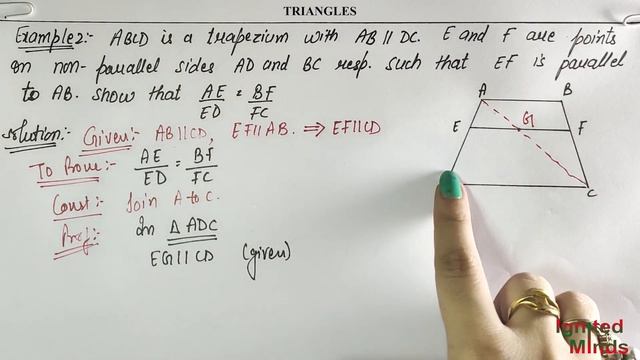 TRIANGLES
Example 2:- ABCD is a trapezium with AB || DC. E and F are points
on non-parallel sides AD and BC resp. such that EF is parallel
to AB. show that AE/ED = BF/FC
Solution:- Given:- AB||CD, EF||AB. ⇒ EF||CD
To Prove:- AE/ED = BF/FC
Const:- Join A to C.
Proof:- In △ ADC
EG||CD (given)
A B
E G F
C
Ignited
Minds